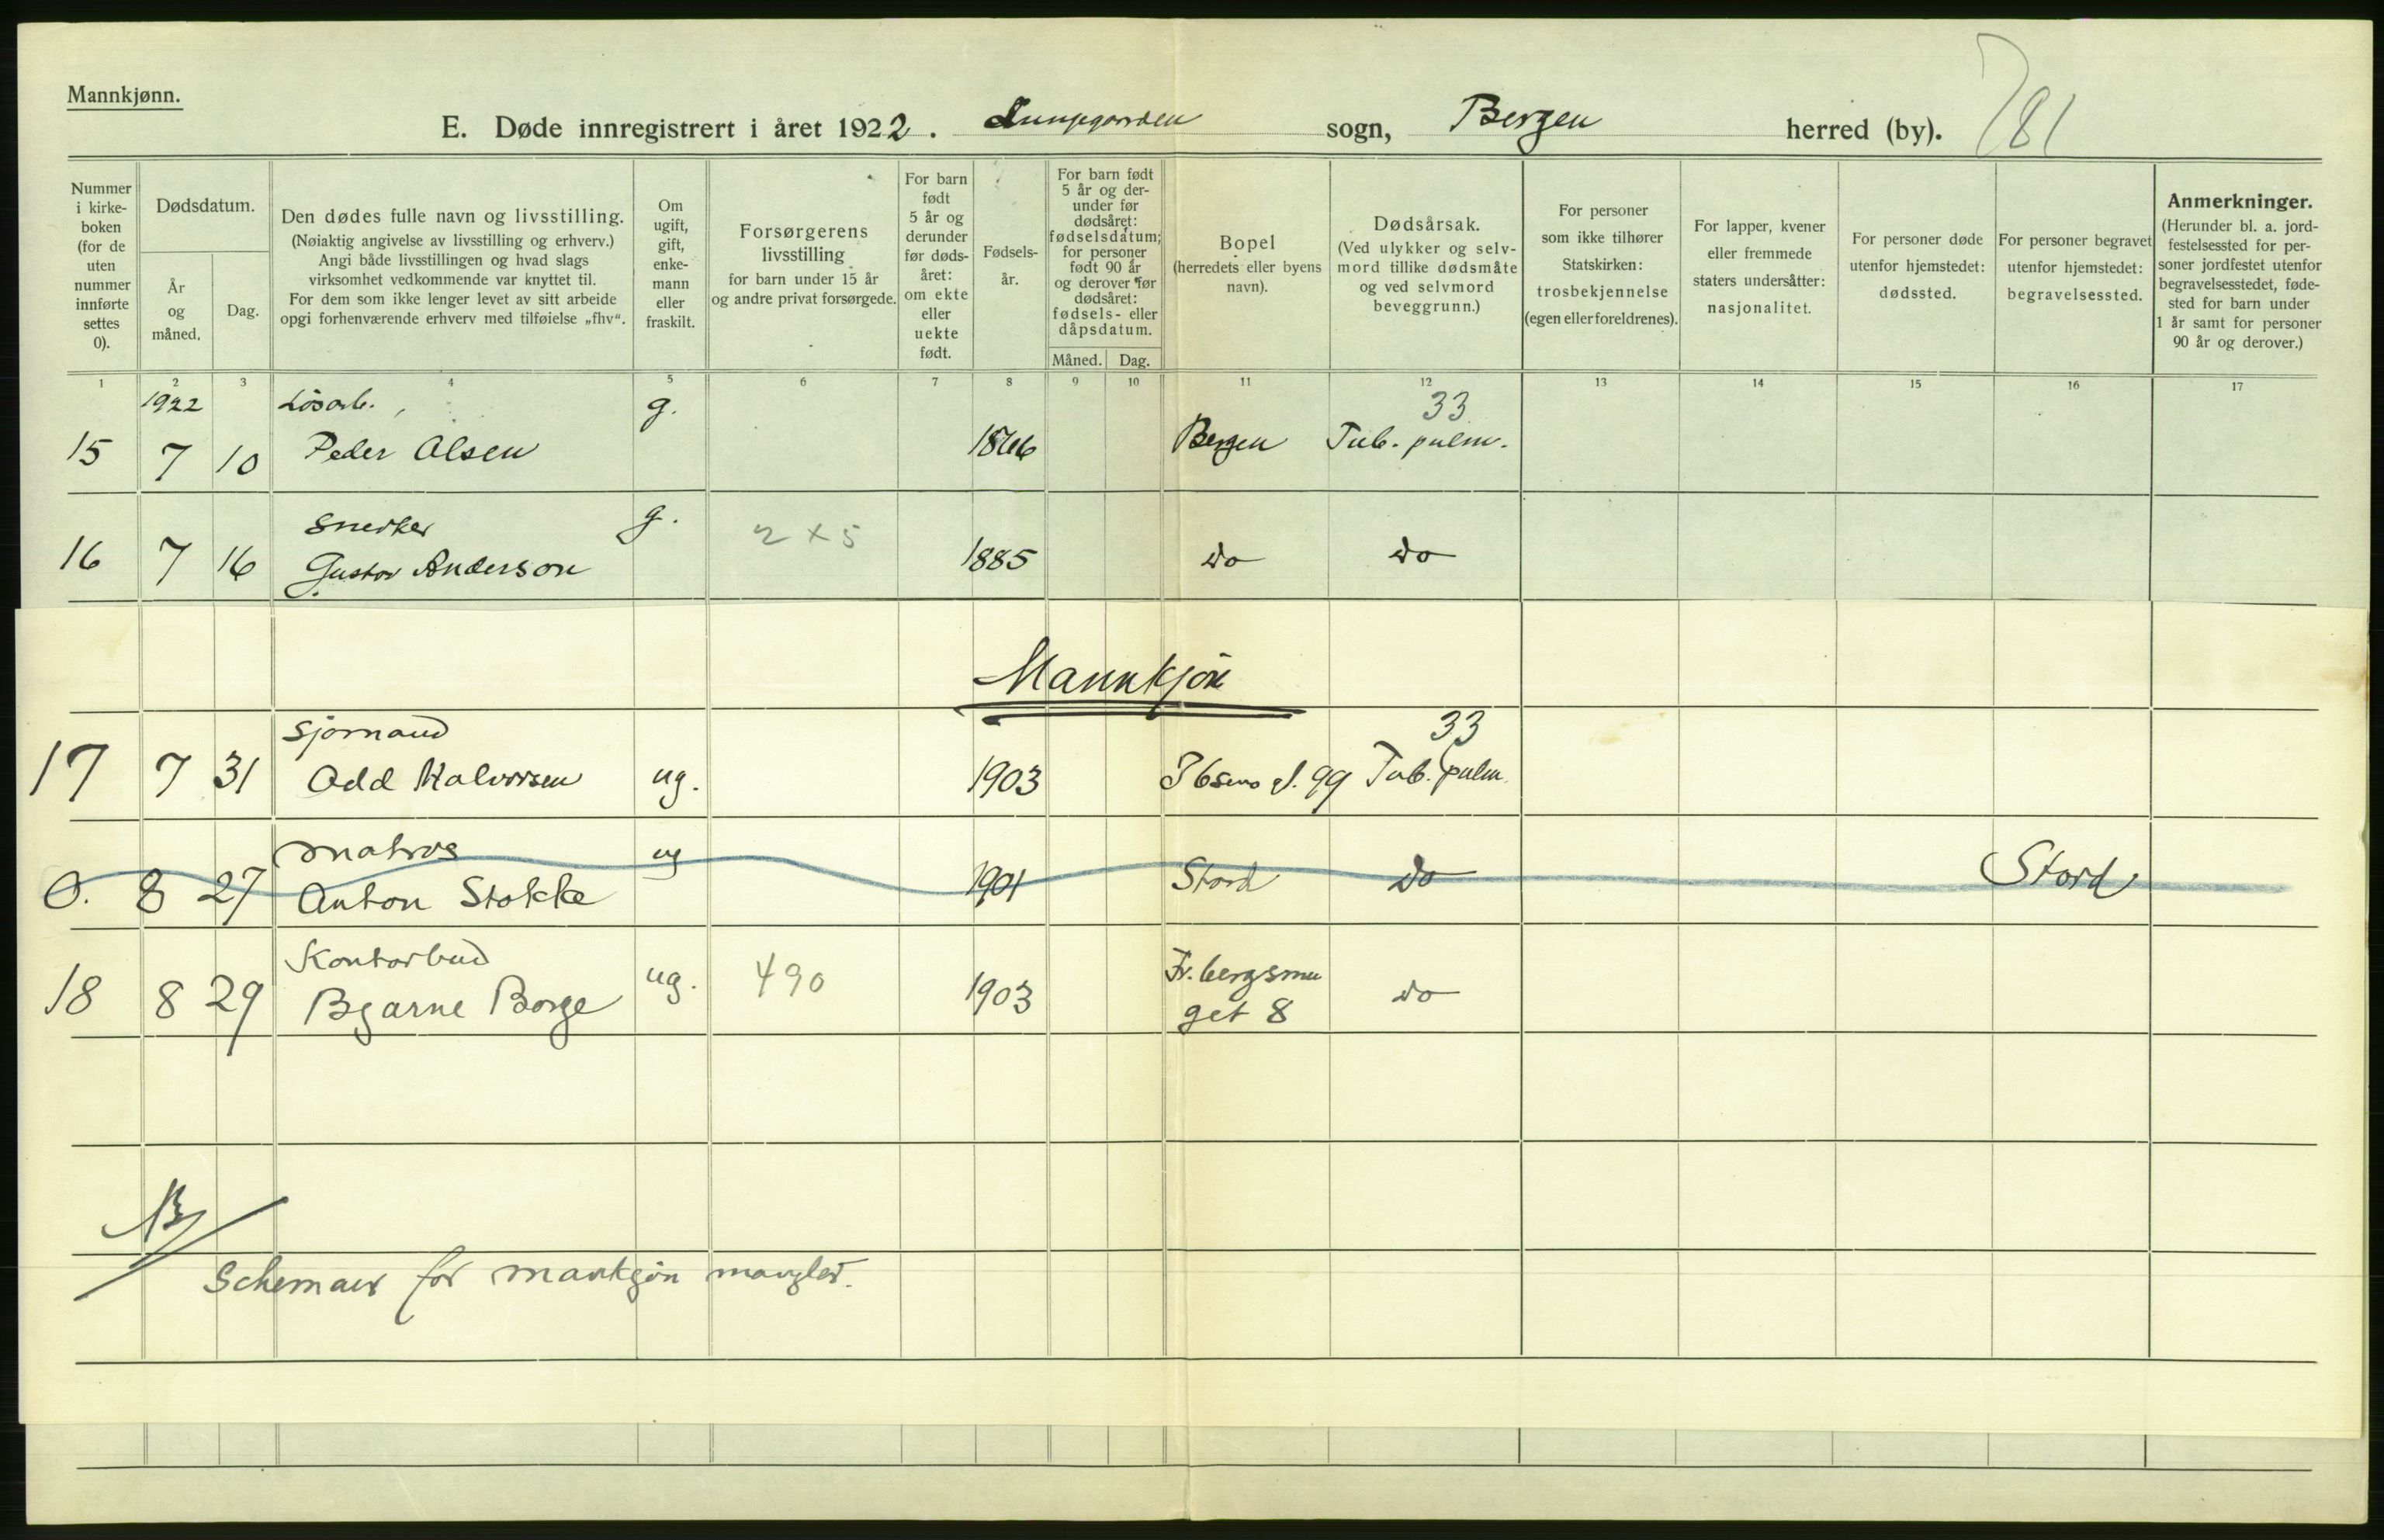 Mannkjønn.
E. Døde innregistrert i året 1922. Lungegaarden sogn, Bergen herred (by). 781
Nummer i kirke- boken (for de uten nummer innførte settes 0).
Dødsdatum.
År og måned.
Dag.
Den dødes fulle navn og livsstilling.
(Nøiaktig angivelse av livsstilling og erhverv.)
Angi både livsstillingen og hvad slags
virksomhet vedkommende var knyttet til.
For dem som ikke lenger levet av sitt arbeide
opgi forhenværende erhverv med tilføielse „fhv“.
Om ugift, gift, enke- mann eller fraskilt.
Forsørgerens
livsstilling
for barn under 15 år
og andre privat forsørgede.
For barn født 5 år og derunder før døds- året: om ekte eller uekte født.
Fødsels- år.
For barn født 5 år og der- under før dødsåret: fødselsdatum; for personer født 90 år og derover før dødsåret: fødsels- eller dåpsdatum.
Måned. Dag.
Bopel
(herredets eller byens
navn).
Dødsårsak.
(Ved ulykker og selv-
mord tillike dødsmåte
og ved selvmord
beveggrunn.)
For personer
som ikke tilhører
Statskirken:
trosbekjennelse
(egen eller foreldrenes).
For lapper, kvener
eller fremmede
staters undersåtter:
nasjonalitet.
For personer døde
utenfor hjemstedet:
dødssted.
For personer begravet
utenfor hjemstedet:
begravelsessted.
Anmerkninger.
(Herunder bl. a. jord-
festelsessted for per-
soner jordfestet utenfor
begravelsesstedet, føde-
sted for barn under
1 år samt for personer
90 år og derover.)
1 2 3 4 5 6 7 8 9 10 11 12 13 14 15 16 17
1922 Løsarb. g. 33
15 7 10 Peder Olsen 1866 Bergen Tub. pulm.
Snedker g.
16 7 16 Gustav Anderson 2 x 5 1885 do do
Mannkjøn
Sjømand 33
17 7 31 Odd Halvorsen ug. 1903 Ibsens g. 99 Tub. pulm.
Matros ug
0. 8 27 Anton Stokke 1901 Stord do Stord
Kontorbud Fr. bergsmu
18 8 29 Bjarne Borge ug. 490 1903 get 8 do
Schemaer for mankjøn mangler.